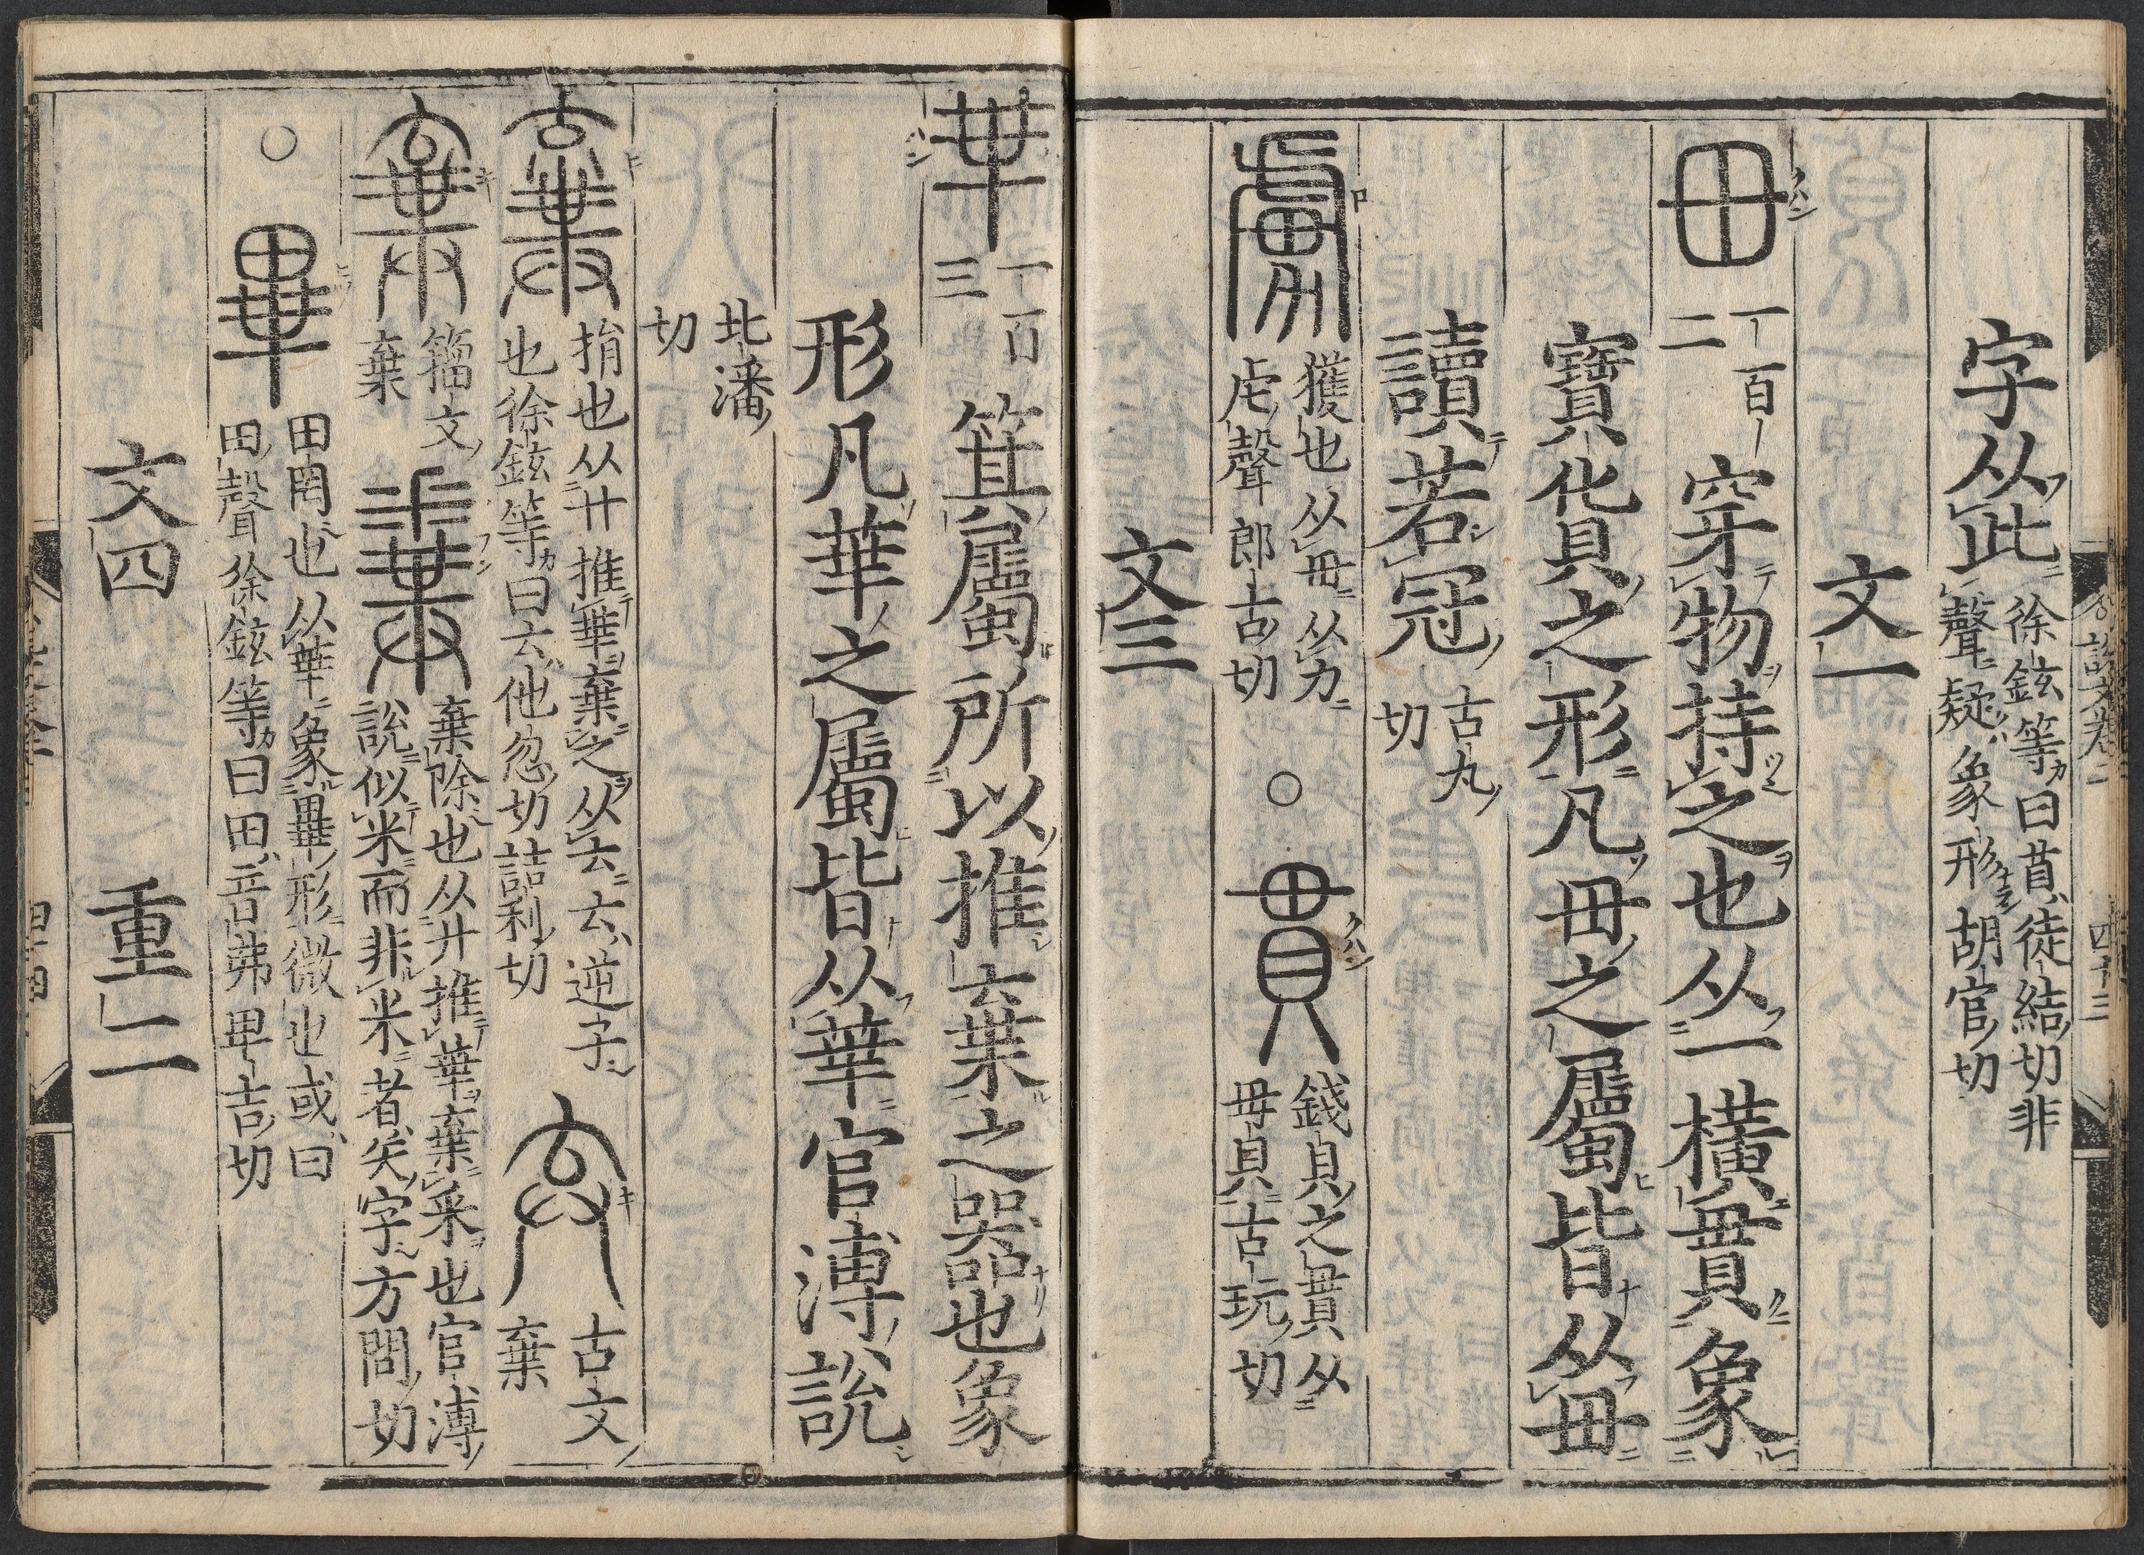 字从此徐鉉等曰苜徒結切非
聲疑象形胡官切
文一
毌一百二穿物持之也从一橫貫象
寶化貝之形凡毌之屬皆从毌
讀若冠古丸切
虜獲也从毌从力
虍聲郎古切
○貫錢貝之貫从
毌貝古玩切
文三
𠦒一百三箕屬所以推弃之器也象
形凡𠦒之屬皆从𠦒官溥說
北潘切
棄捐也从廾推𠦒棄之从𠫓𠫓逆子
也徐鉉等曰𠫓他忽切詰利切
弃古文棄
籀文棄
糞棄除也从廾推𠦒棄釆也官溥
說似米而非米者矢字方問切
○畢田罔也从𠦒象畢形微也或曰
田聲徐鉉等曰田音弗卑吉切
文四 重二
說文卷二
四十三